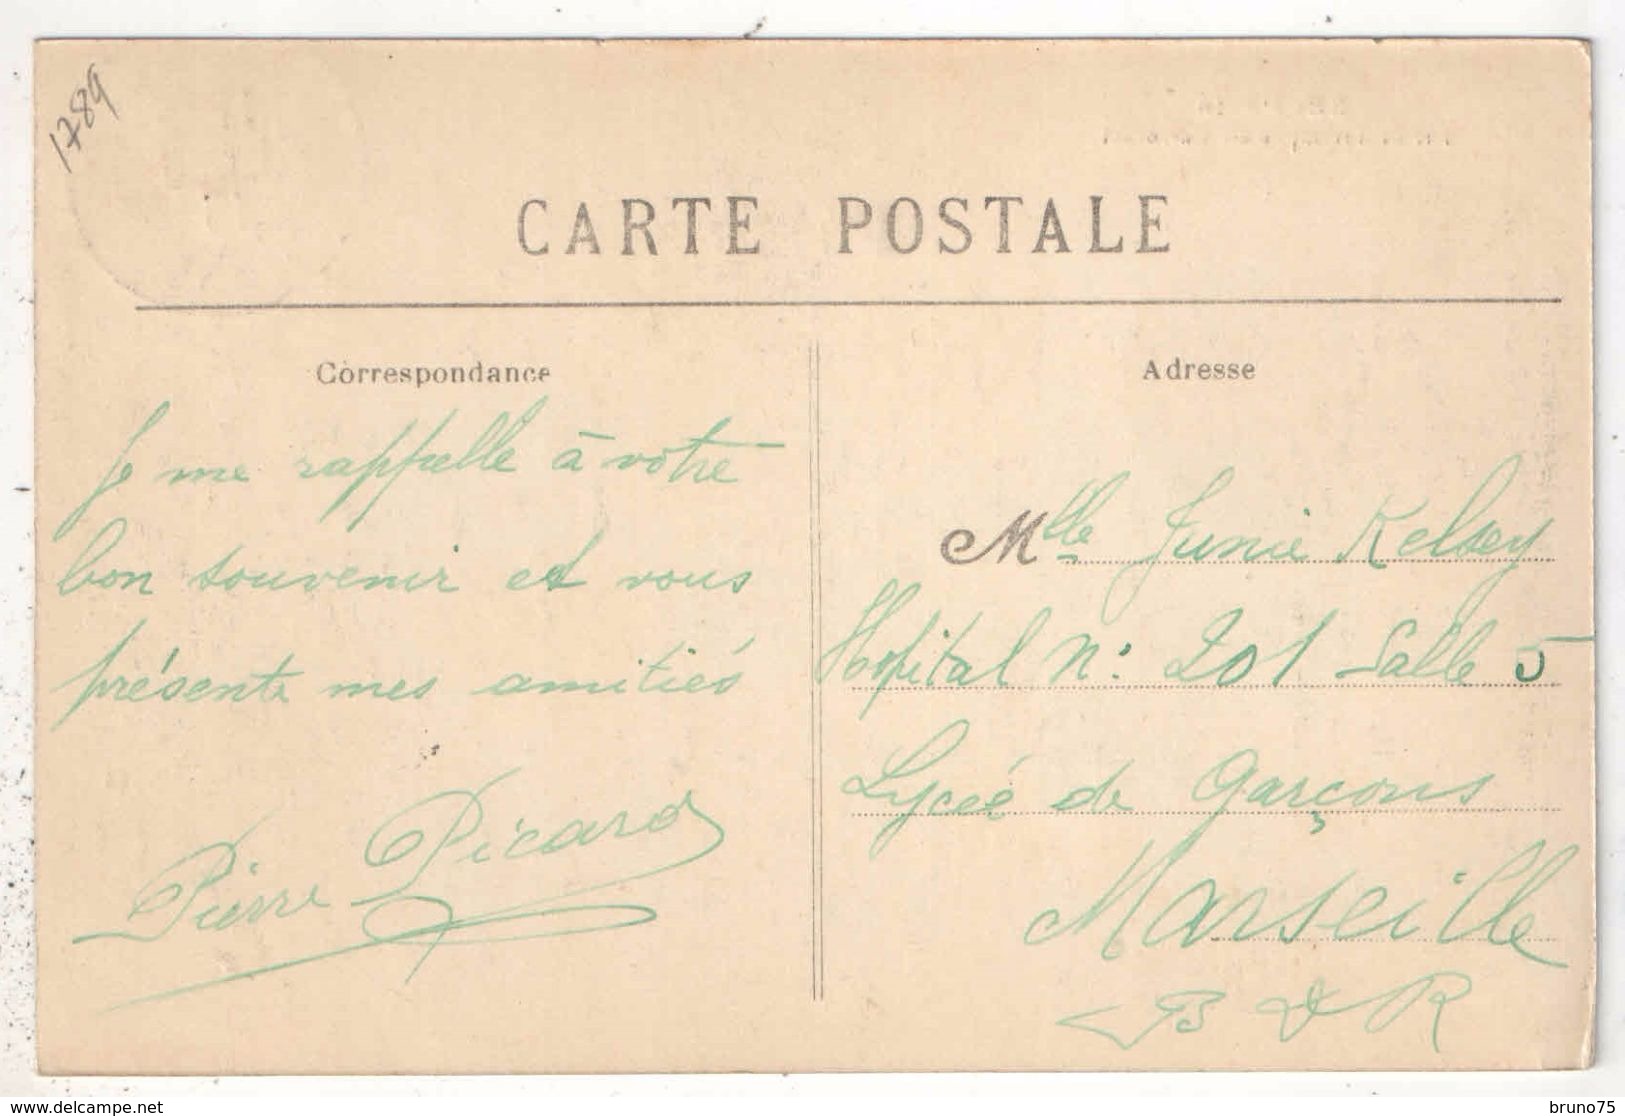 1789
CARTE POSTALE
Correspondance
Je me rappelle à votre
bon souvenir et vous
présente mes amitiés
Pierre Picard
Adresse
Mlle Junie Kelsey
Hopital N: 201 Salle 5
Lycée de Garçons
Marseille
B D R
delcampe.net
bruno75